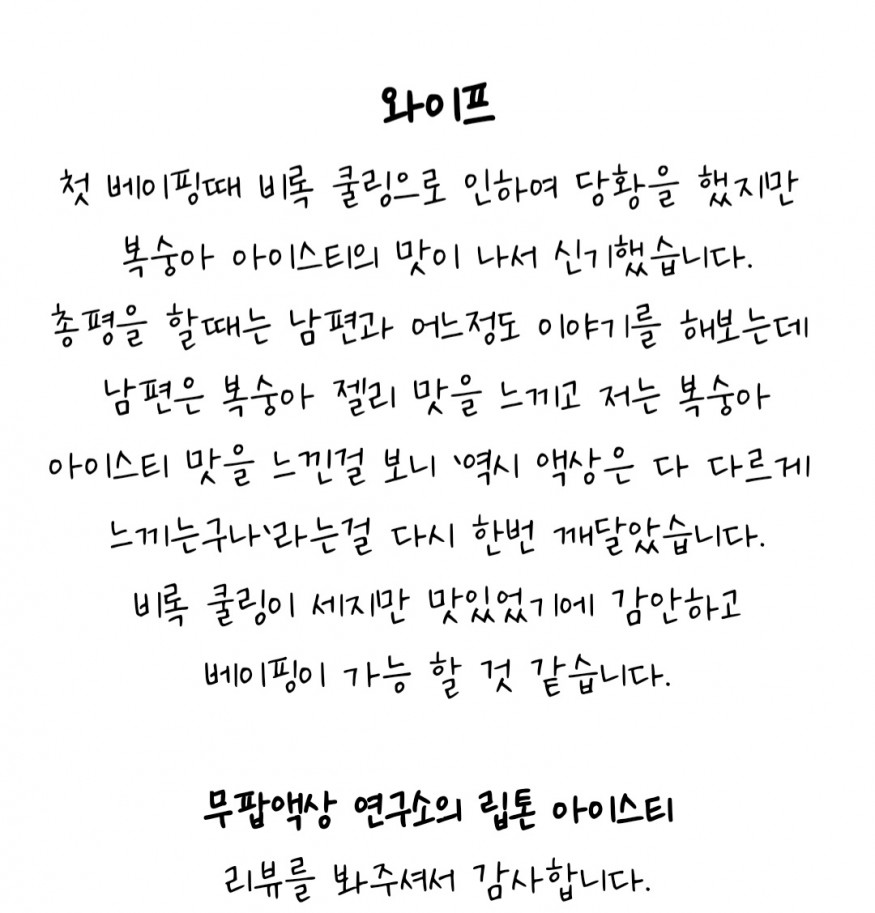 와이프
첫 베이핑때 비록 쿨링으로 인하여 당황을 했지만
복숭아 아이스티의 맛이 나서 신기했습니다.
총평을 할때는 남편과 어느정도 이야기를 해보는데
남편은 복숭아 젤리 맛을 느끼고 저는 복숭아
아이스티 맛을 느낀걸 보니 '역시 액상은 다 다르게
느끼는구나'라는걸 다시 한번 깨달았습니다.
비록 쿨링이 세지만 맛있었기에 감안하고
베이핑이 가능 할 것 같습니다.
무팝액상 연구소의 립톤 아이스티
리뷰를 봐주셔서 감사합니다.